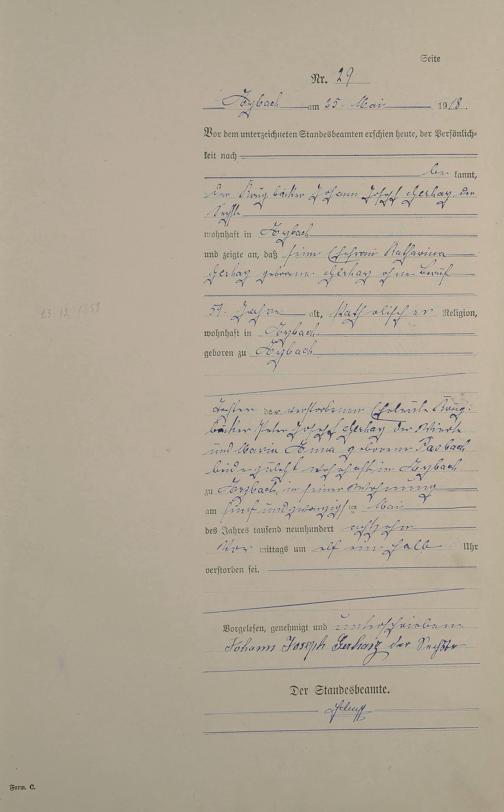 Seite
Nr. 29
am 25. Mai 1918.
Vor dem unterzeichneten Standesbeamten erschien heute, der Persönlich-
keit nach
be kannt,
der Krugbäcker Johann Josef Gerhaz der
Sechste
wohnhaft in
und zeigte an, daß seine Ehefrau Katharina
Gerhaz geborene Gerhaz ohne Beruf
59 Jahre alt, katholischer Religion,
wohnhaft in
geboren zu
Tochter der verstorbenen Eheleute Krug-
bäcker Peter Josef Gerhaz der Vierte
und Maria Anna geborene
beide zuletzt wohnhaft in
zu in seiner Wohnung
am fünfundzwanzigsten Mai
des Jahres tausend neunhundert achtzehn
Vor mittags um elf einhalb Uhr
verstorben sei.
Vorgelesen, genehmigt und unterschrieben
Johann Joseph Gerhaz der Sechste
Der Standesbeamte.
Form. C.